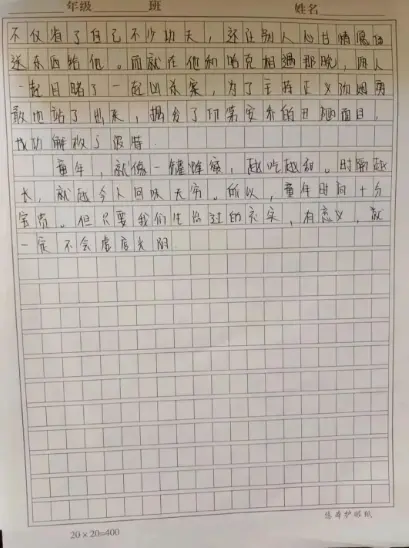 年级 班 姓名
不仅省了自己不少功夫，还让别人心甘情愿倍
送东西给他。而就在他和哈克相遇那晚，俩人
一起目睹了一起凶杀案，为了主持正义汤姆勇
敢地站了出来，揭发了印第安乔的丑恶面目，
成功解救了波特。
童年，就像一罐蜂蜜，越吃越甜。时隔越
长，就越令人回味无穷。所以，童年时间十分
宝贵。但只要我们生活过的充实，有意义，就
一定不会虚度光阴
20×20=400